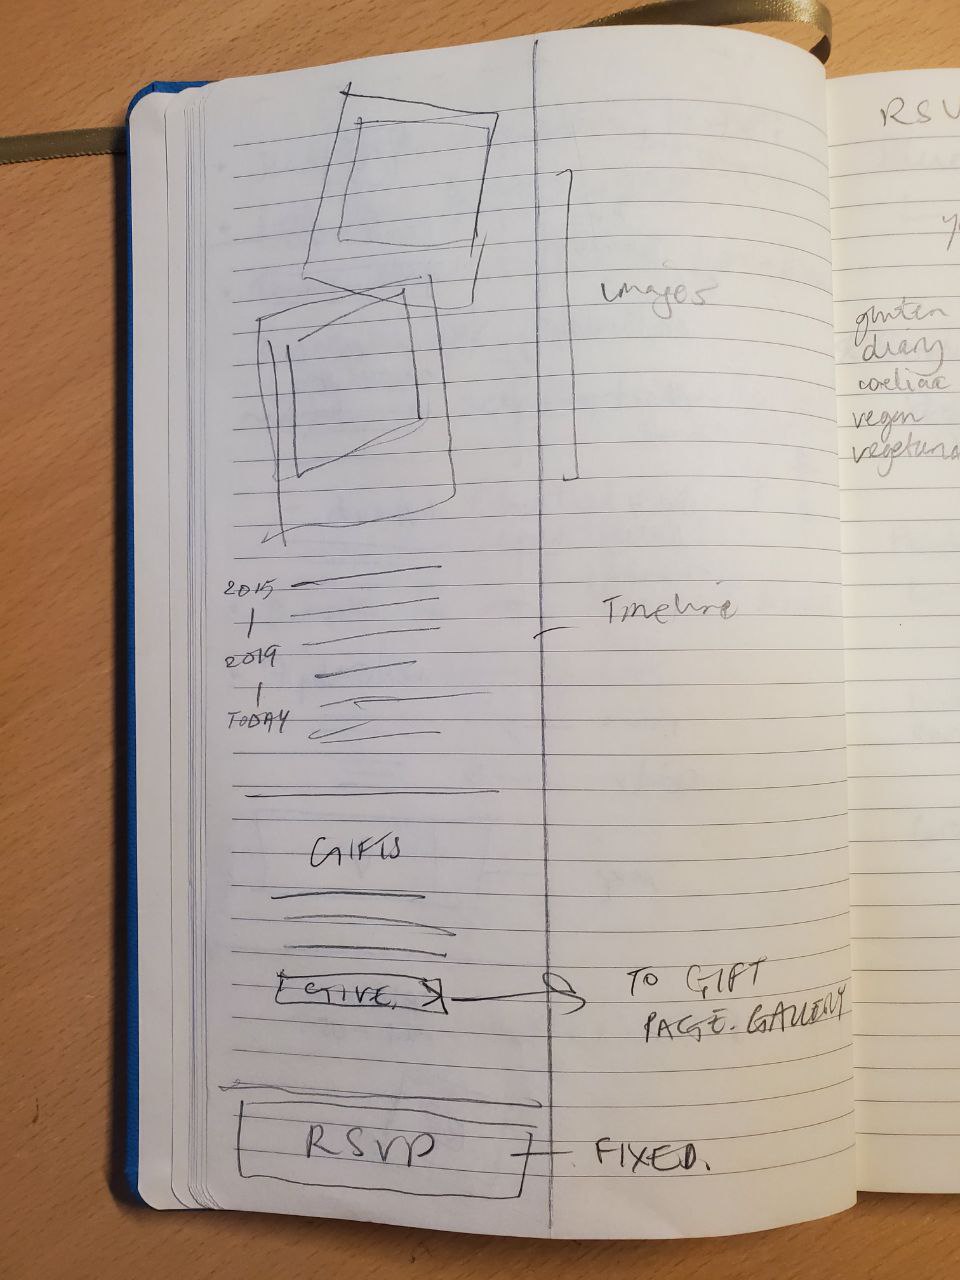 images
2015
2019
TODAY
Timeline
GIFTS
GIVE
TO GIFT
PAGE. GALLERY
RSVP
FIXED.
RSV
gluten
diary
coeliac
vegan